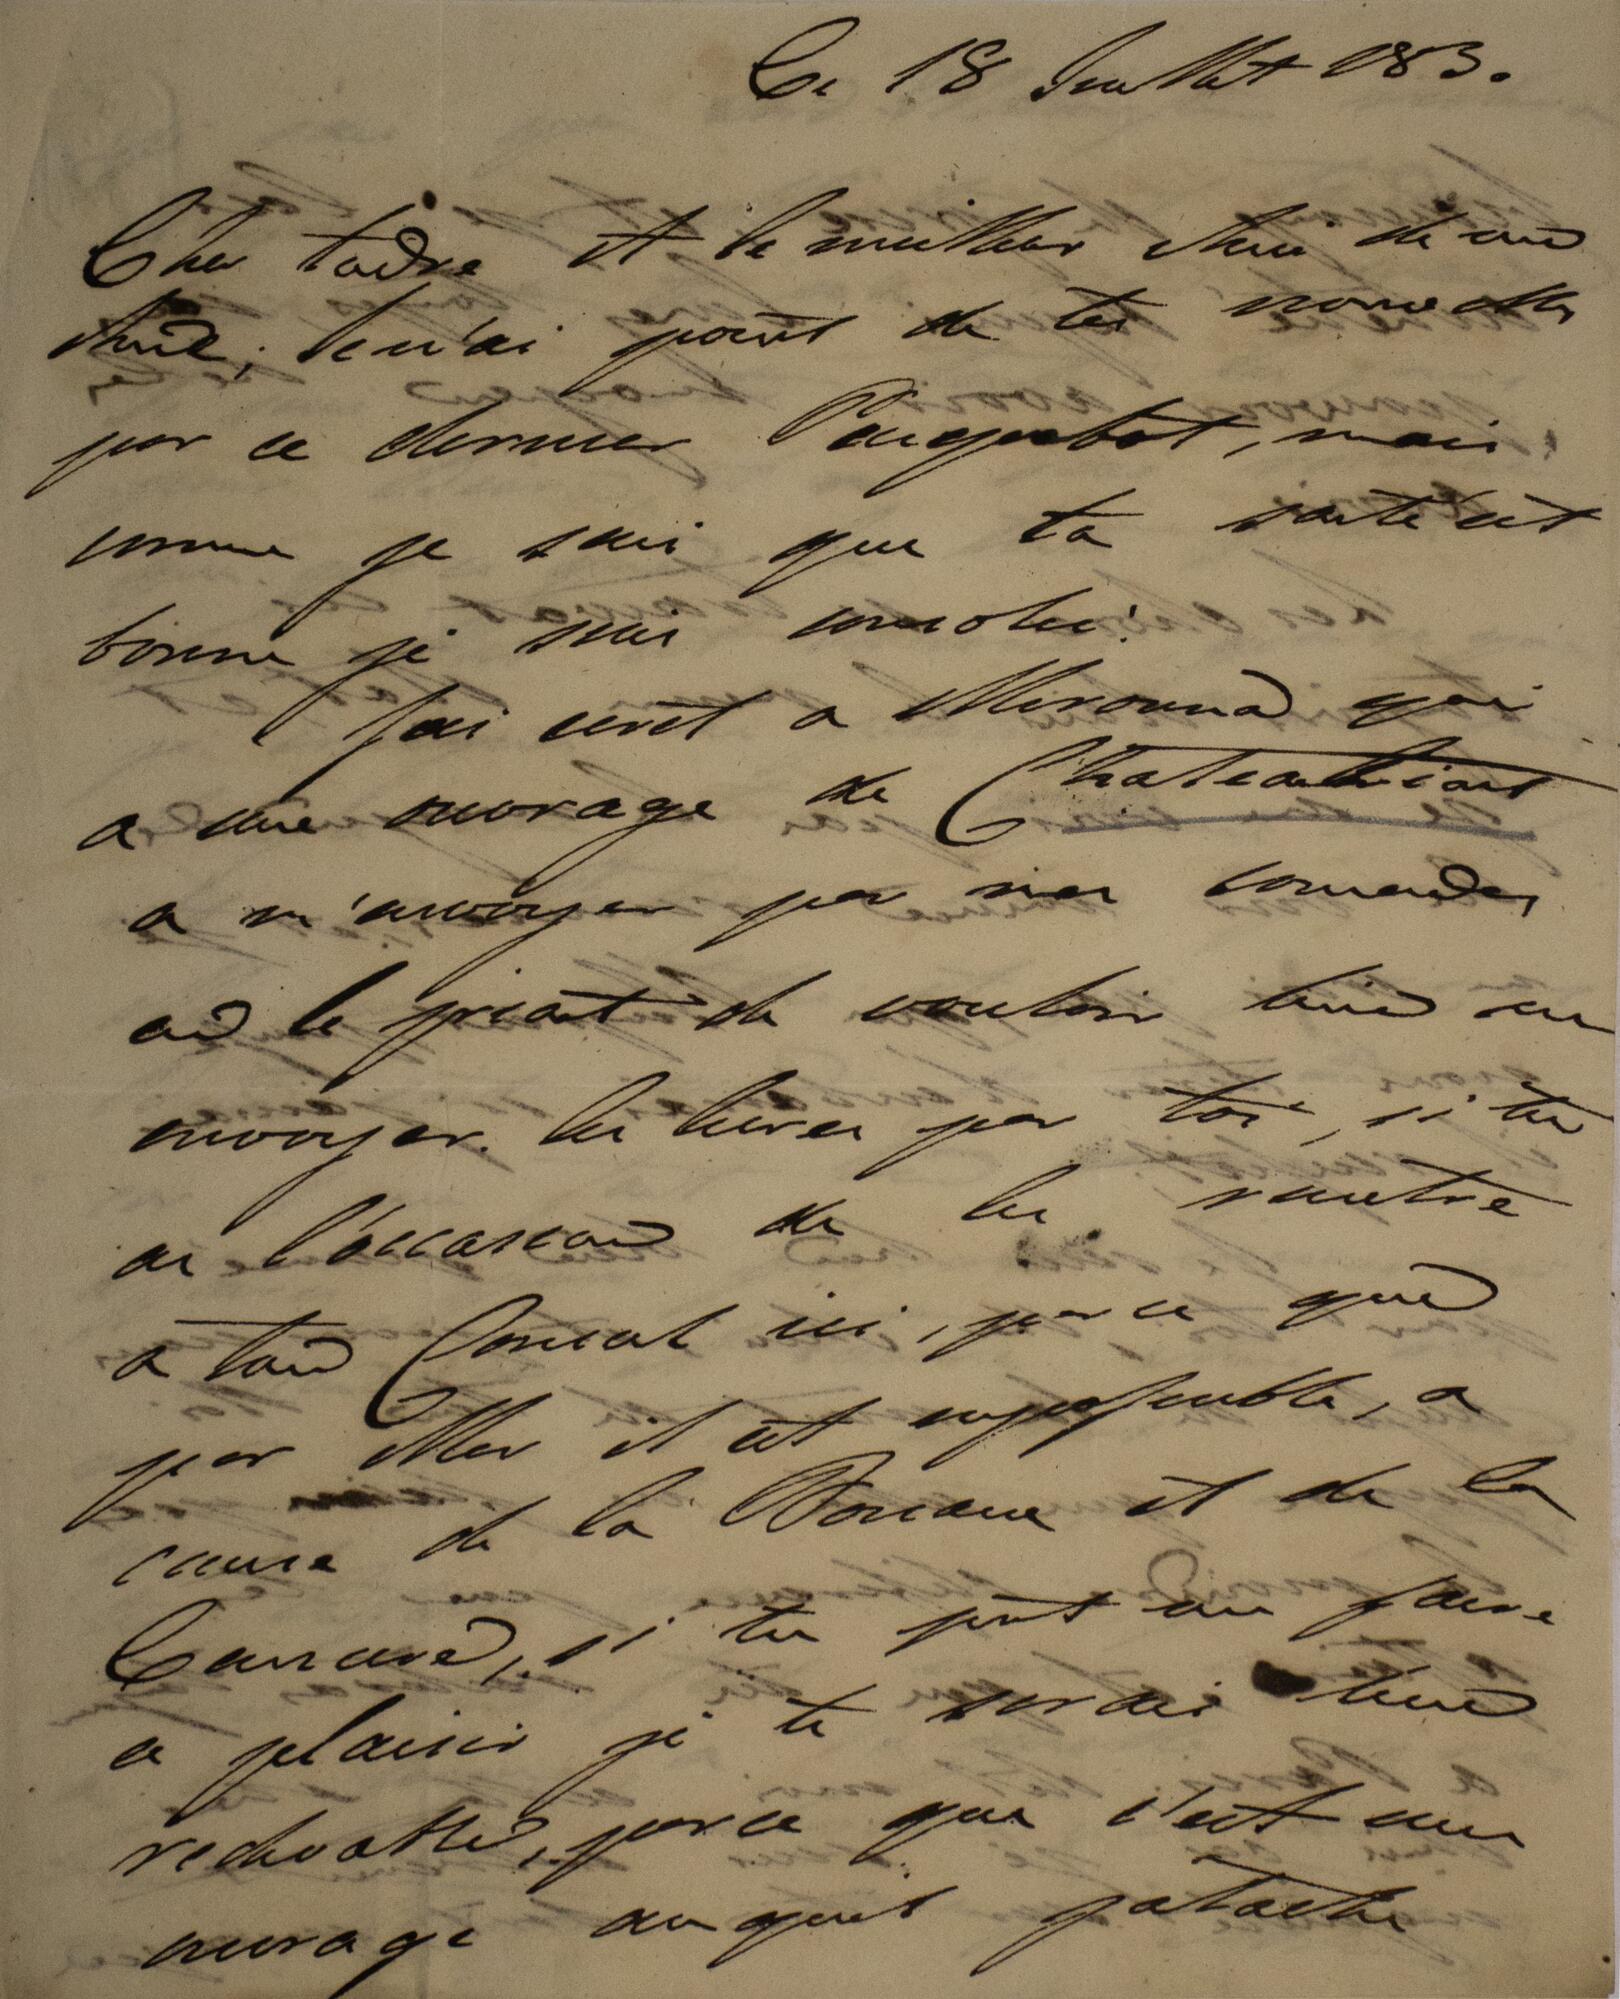 Le 18 Juillet 183.
Cher tadre et le meilleur Ami de mes
Amis; Je n'ai point de tes nouvelles
par ce dernier Paquebot, mais
comme je sai que ta santé est
bonne je suis consolé.
J'ai ecrit a Mironna qui
a une ouvrage de Chateaubriant
a m'envoyer par mer
en le priant de vouloir bien me
envoyer les livres par toi, si tu
as l'occasion de les mettre
a ton Consul ici, parce que
par Mer il est impossible, a
cause de la Douane et de la
Censure, si tu peut me faire
ce plaisir je te serais bien
redevable, parce que c'est une
ouvrage auquel j'attache